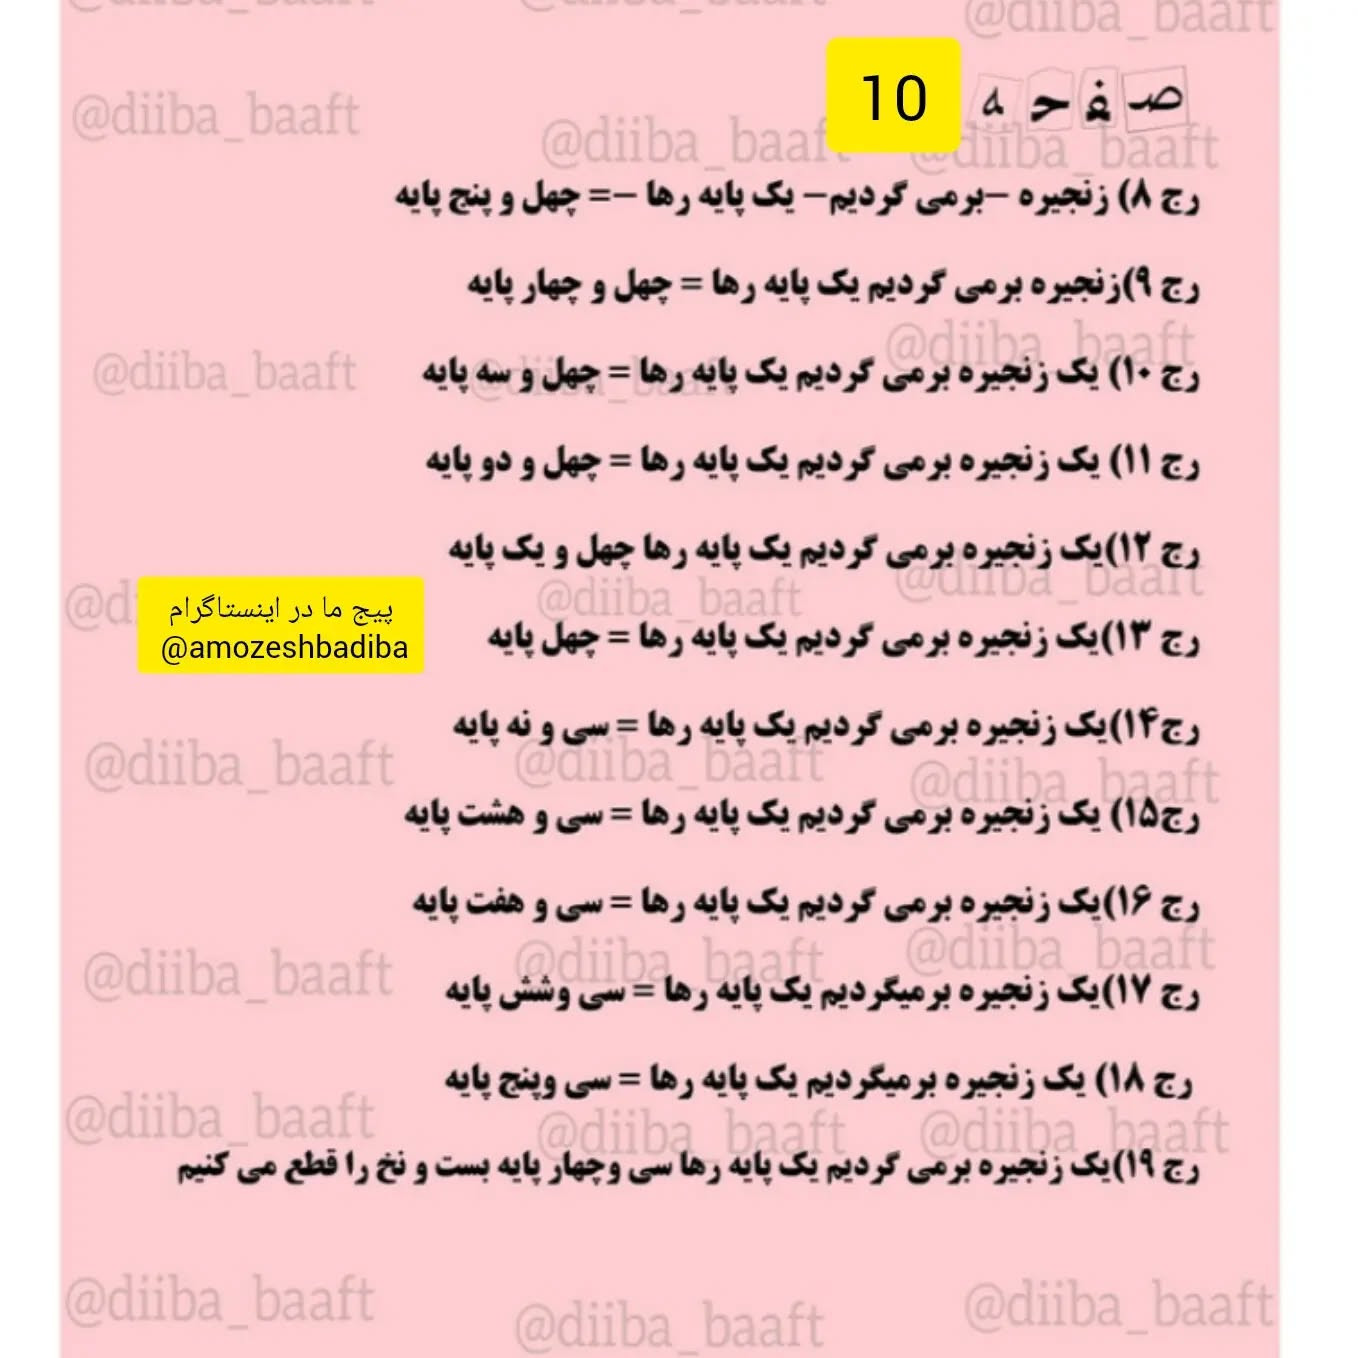 @diiba_baaft
صفحه 10
@diiba_baaft
@diiba_baaft
@diiba_baaft
رج ۸) زنجیره –برمی گردیم– یک پایه رها –= چهل و پنج پایه
رج ۹)زنجیره برمی گردیم یک پایه رها = چهل و چهار پایه
@diiba_baaft
@diiba_baaft
@diiba_baaft
رج ۱۰) یک زنجیره برمی گردیم یک پایه رها = چهل و سه پایه
رج ۱۱) یک زنجیره برمی گردیم یک پایه رها = چهل و دو پایه
رج ۱۲)یک زنجیره برمی گردیم یک پایه رها چهل و یک پایه
@diiba_baaft
@diiba_baaft
پیج ما در اینستاگرام
@amozeshbadiba
رج ۱۳)یک زنجیره برمی گردیم یک پایه رها = چهل پایه
رج۱۴)یک زنجیره برمی گردیم یک پایه رها = سی و نه پایه
@diiba_baaft
@diiba_baaft
@diiba_baaft
رج۱۵) یک زنجیره برمی گردیم یک پایه رها = سی و هشت پایه
رج ۱۶)یک زنجیره برمی گردیم یک پایه رها = سی و هفت پایه
@diiba_baaft
@diiba_baaft
@diiba_baaft
رج ۱۷)یک زنجیره برمیگردیم یک پایه رها = سی وشش پایه
رج ۱۸) یک زنجیره برمیگردیم یک پایه رها = سی وپنج پایه
@diiba_baaft
@diiba_baaft
@diiba_baaft
رج ۱۹)یک زنجیره برمی گردیم یک پایه رها سی وچهار پایه بست و نخ را قطع می کنیم
@diiba_baaft
@diiba_baaft
@diiba_baaft